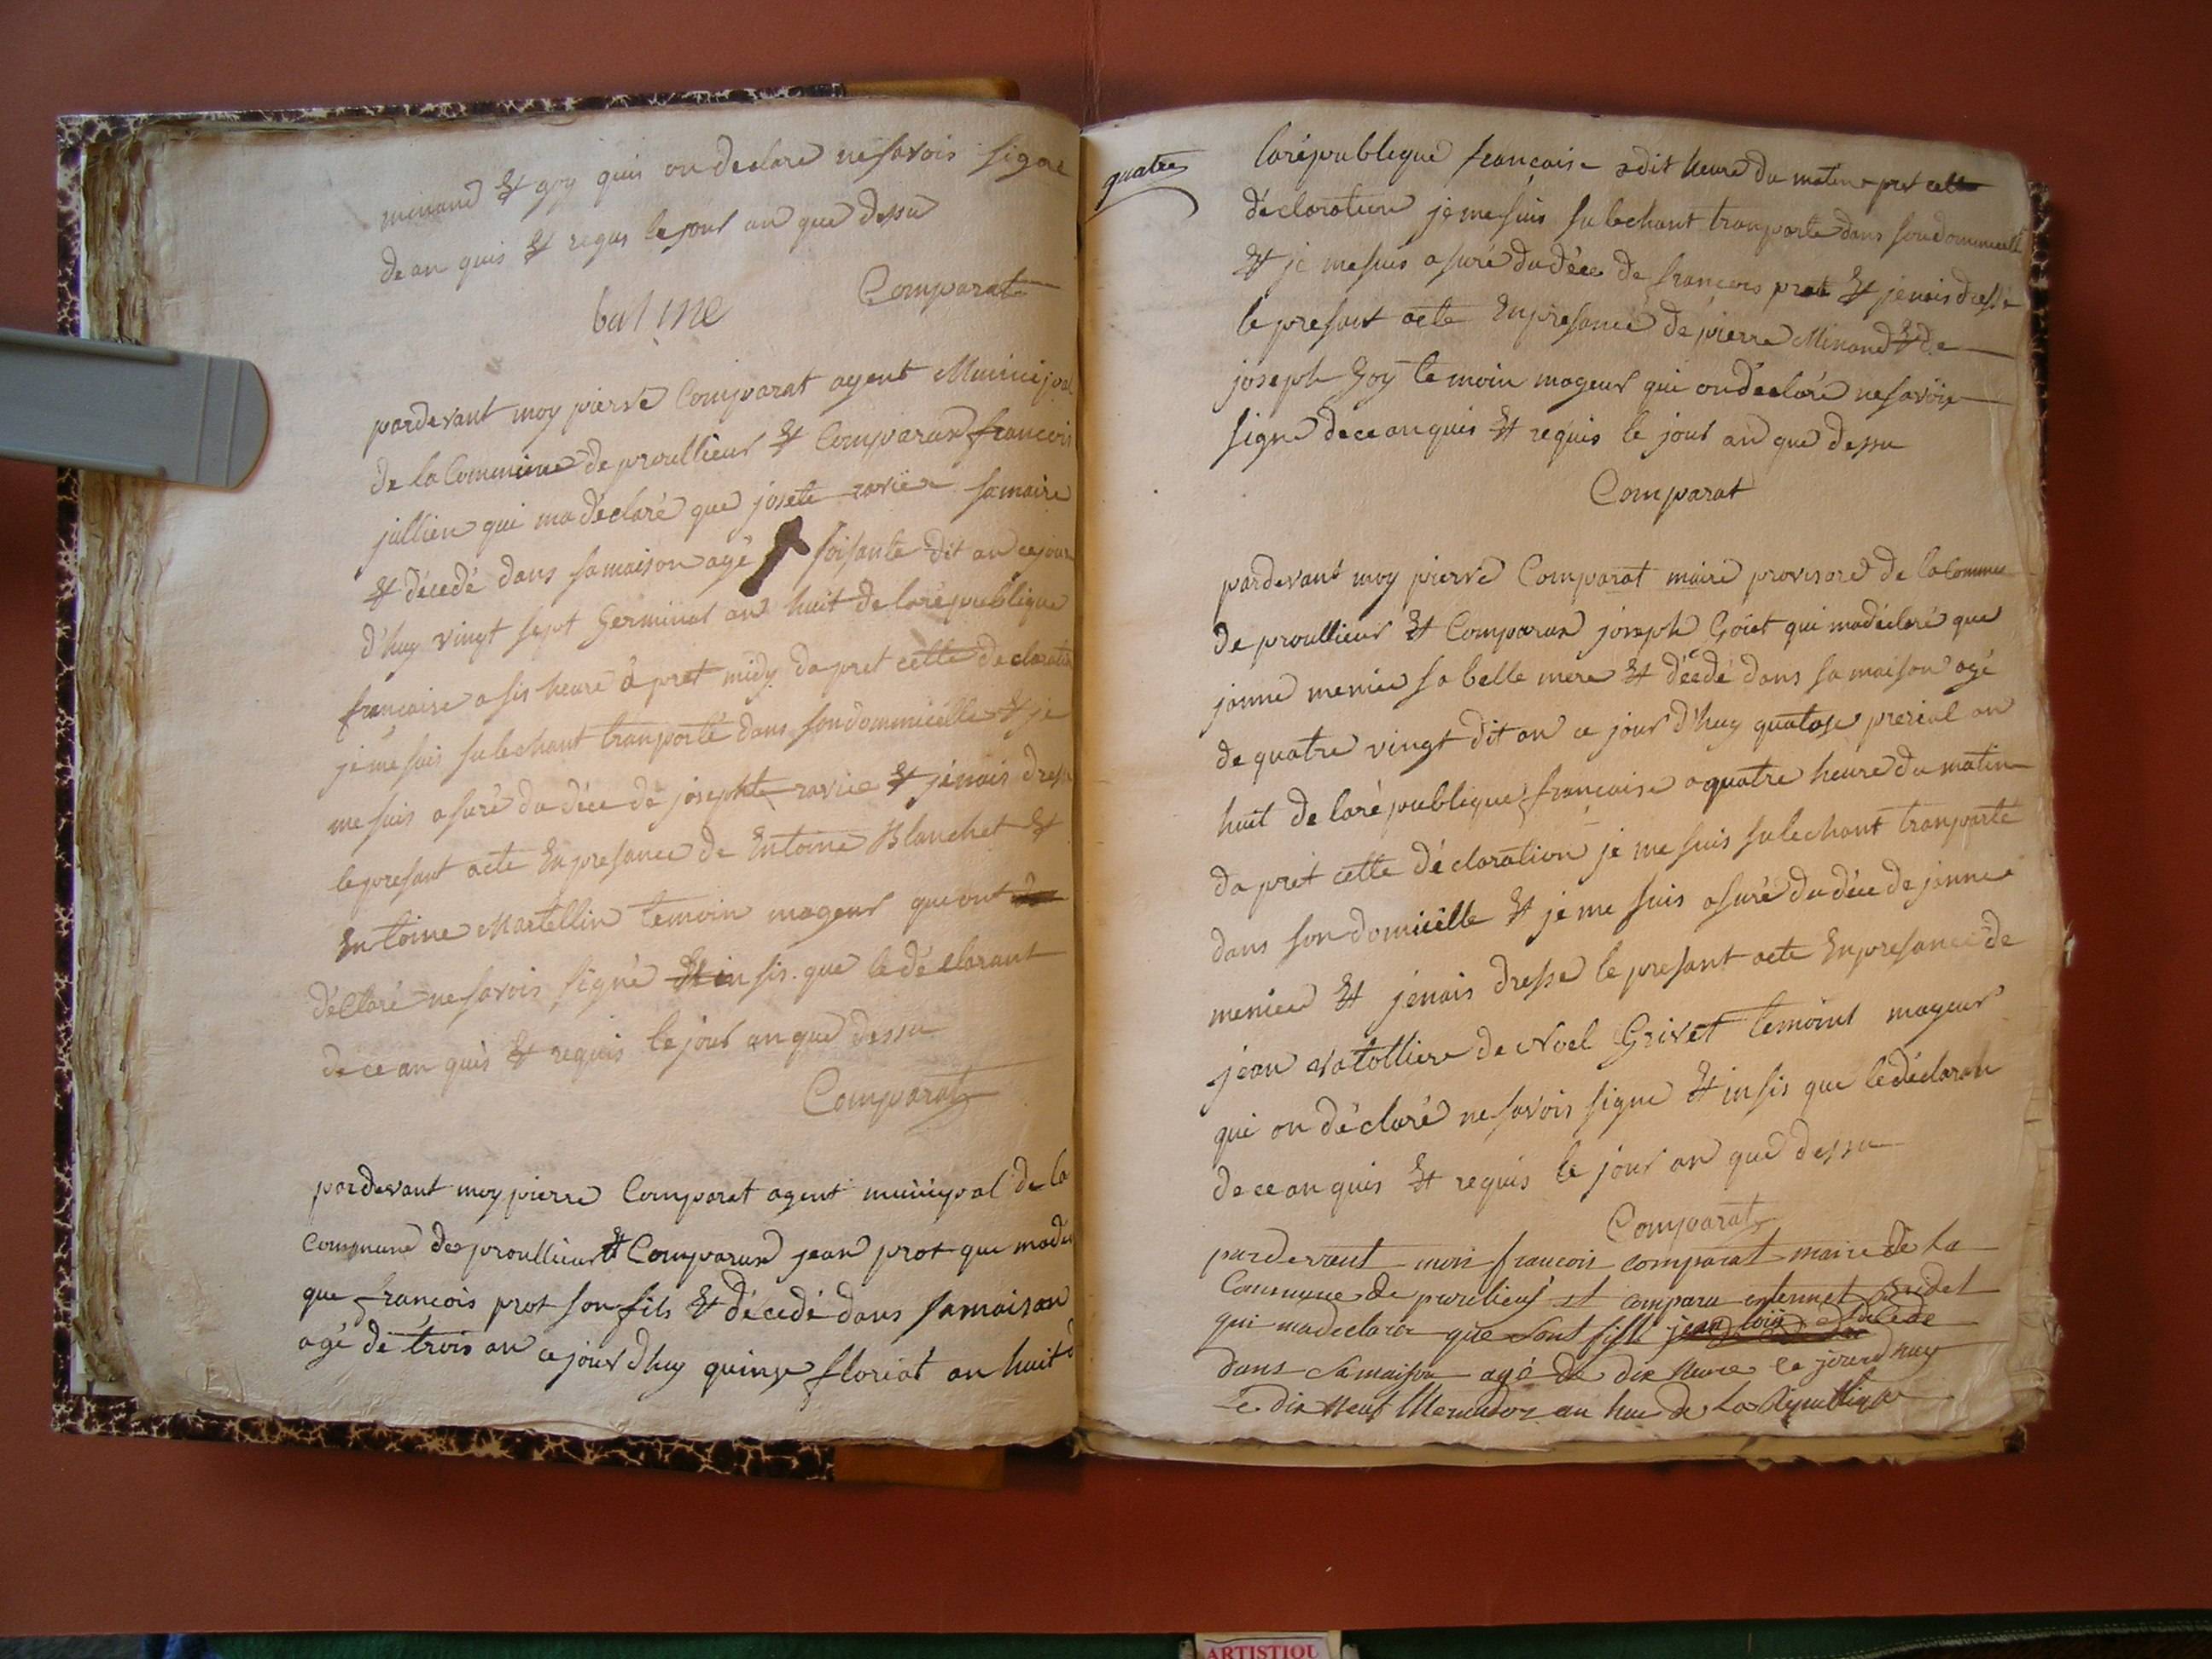 minand Et goy quis on declare ne savois signe
de an quis Et reqas le jour an que dessu
Comparat
batine
pardevant moy pierre Comparat agent Municipal
de la Commune de proullieur Et Comparux francois
jullien qui ma déclaré que josete ravier samaire
Et décedé dans samaison agé soisante dit an ce jour
d'huy vingt sept Germinal an huit de larépublique
francaise a sis heure a pret midy da pret cette declaration
je me suis sulechant tranporté dans son dommicélle Et je
me suis asuré du déce de josephte ravie Et jénais dresse
le presant acte En presance de Entoine Blanchet Et
Entoine Martellin temoin mageur que ont
déClaré ne savois signé Et insis que le déclarant
de ce an quis Et requis le jour an que dessu
Comparat
pardevant moy pierre Comparat agent municipal de la
commune de proullieur Et Comparux jean prot que ma dé
que francois prot son fils Et décedé dans samaison
agé de trois an ce jour d'huy quinze floriat an huit d
quatre
larépubleque francaise a dit heure du maten a pret cette
déclarateon je me suis sulechant tranporte dans son dommicelle
Et je me suis asuré du déce de francois prot Et jenais dresse
le presant acte En presance de pierre Minand Et de
joseph Goy temoin mageur qui on déclaré ne savoir
signe de ce an quis Et requis le jour an que dessu
Comparat
pardevant moy pierre Comparat maire provisore de la Commue
de proullieur Et Comparux joseph Goiet qui ma déclaré que
janne menier sa belle mere Et décedé dans sa maison agé
de quatre vingt dit an ce jour d'huy quatose prerial an
huit de larépublique francaise a quatre heure du matin
da pret cette déclaration je me suis sulechant tranporté
dans son domicélle Et je me suis asuré du déce de janne
menier Et jénais dresse le presant acte En presance de
jean vatolliere de Noel Grivet temoint mageur
qui on déclaré ne savois signe Et insis que le déclaran
de ce an quis Et requis le jour an que dessu
Comparat
pardevent moi francois comparat maire de la
Commune de purelieuf et comparu Guidet
qui ma declarer que sont fisst jean loüis decede
dans sa maison agé de dix heure ce jourd huy
Le dix neuf Mesidor an hue de La République
ARTISTIQU